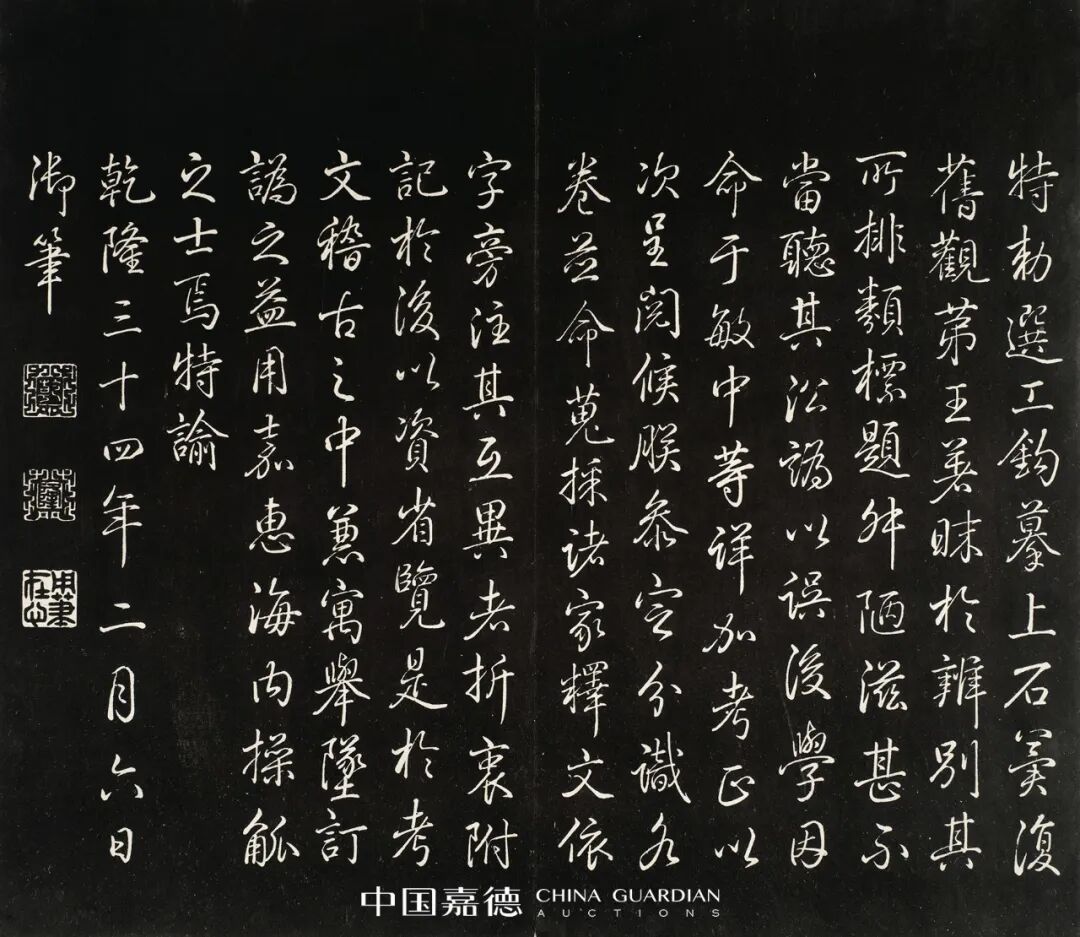 特勅選工鈎摹上石冀復
舊觀第王著昧於辨別其
所排類標題舛陋滋甚不
當聽其沿譌以誤後學因
命于敏中等詳加考正以
次呈閱候朕叅定分識各
卷并命蒐採諸家釋文依
字旁注其互異者折衷附
記於後以資省覽是於考
文稽古之中兼寓舉墜訂
譌之益用嘉惠海內操觚
之士焉特諭
乾隆三十四年二月六日
御筆
中国嘉德 CHINA GUARDIAN
AUCTIONS